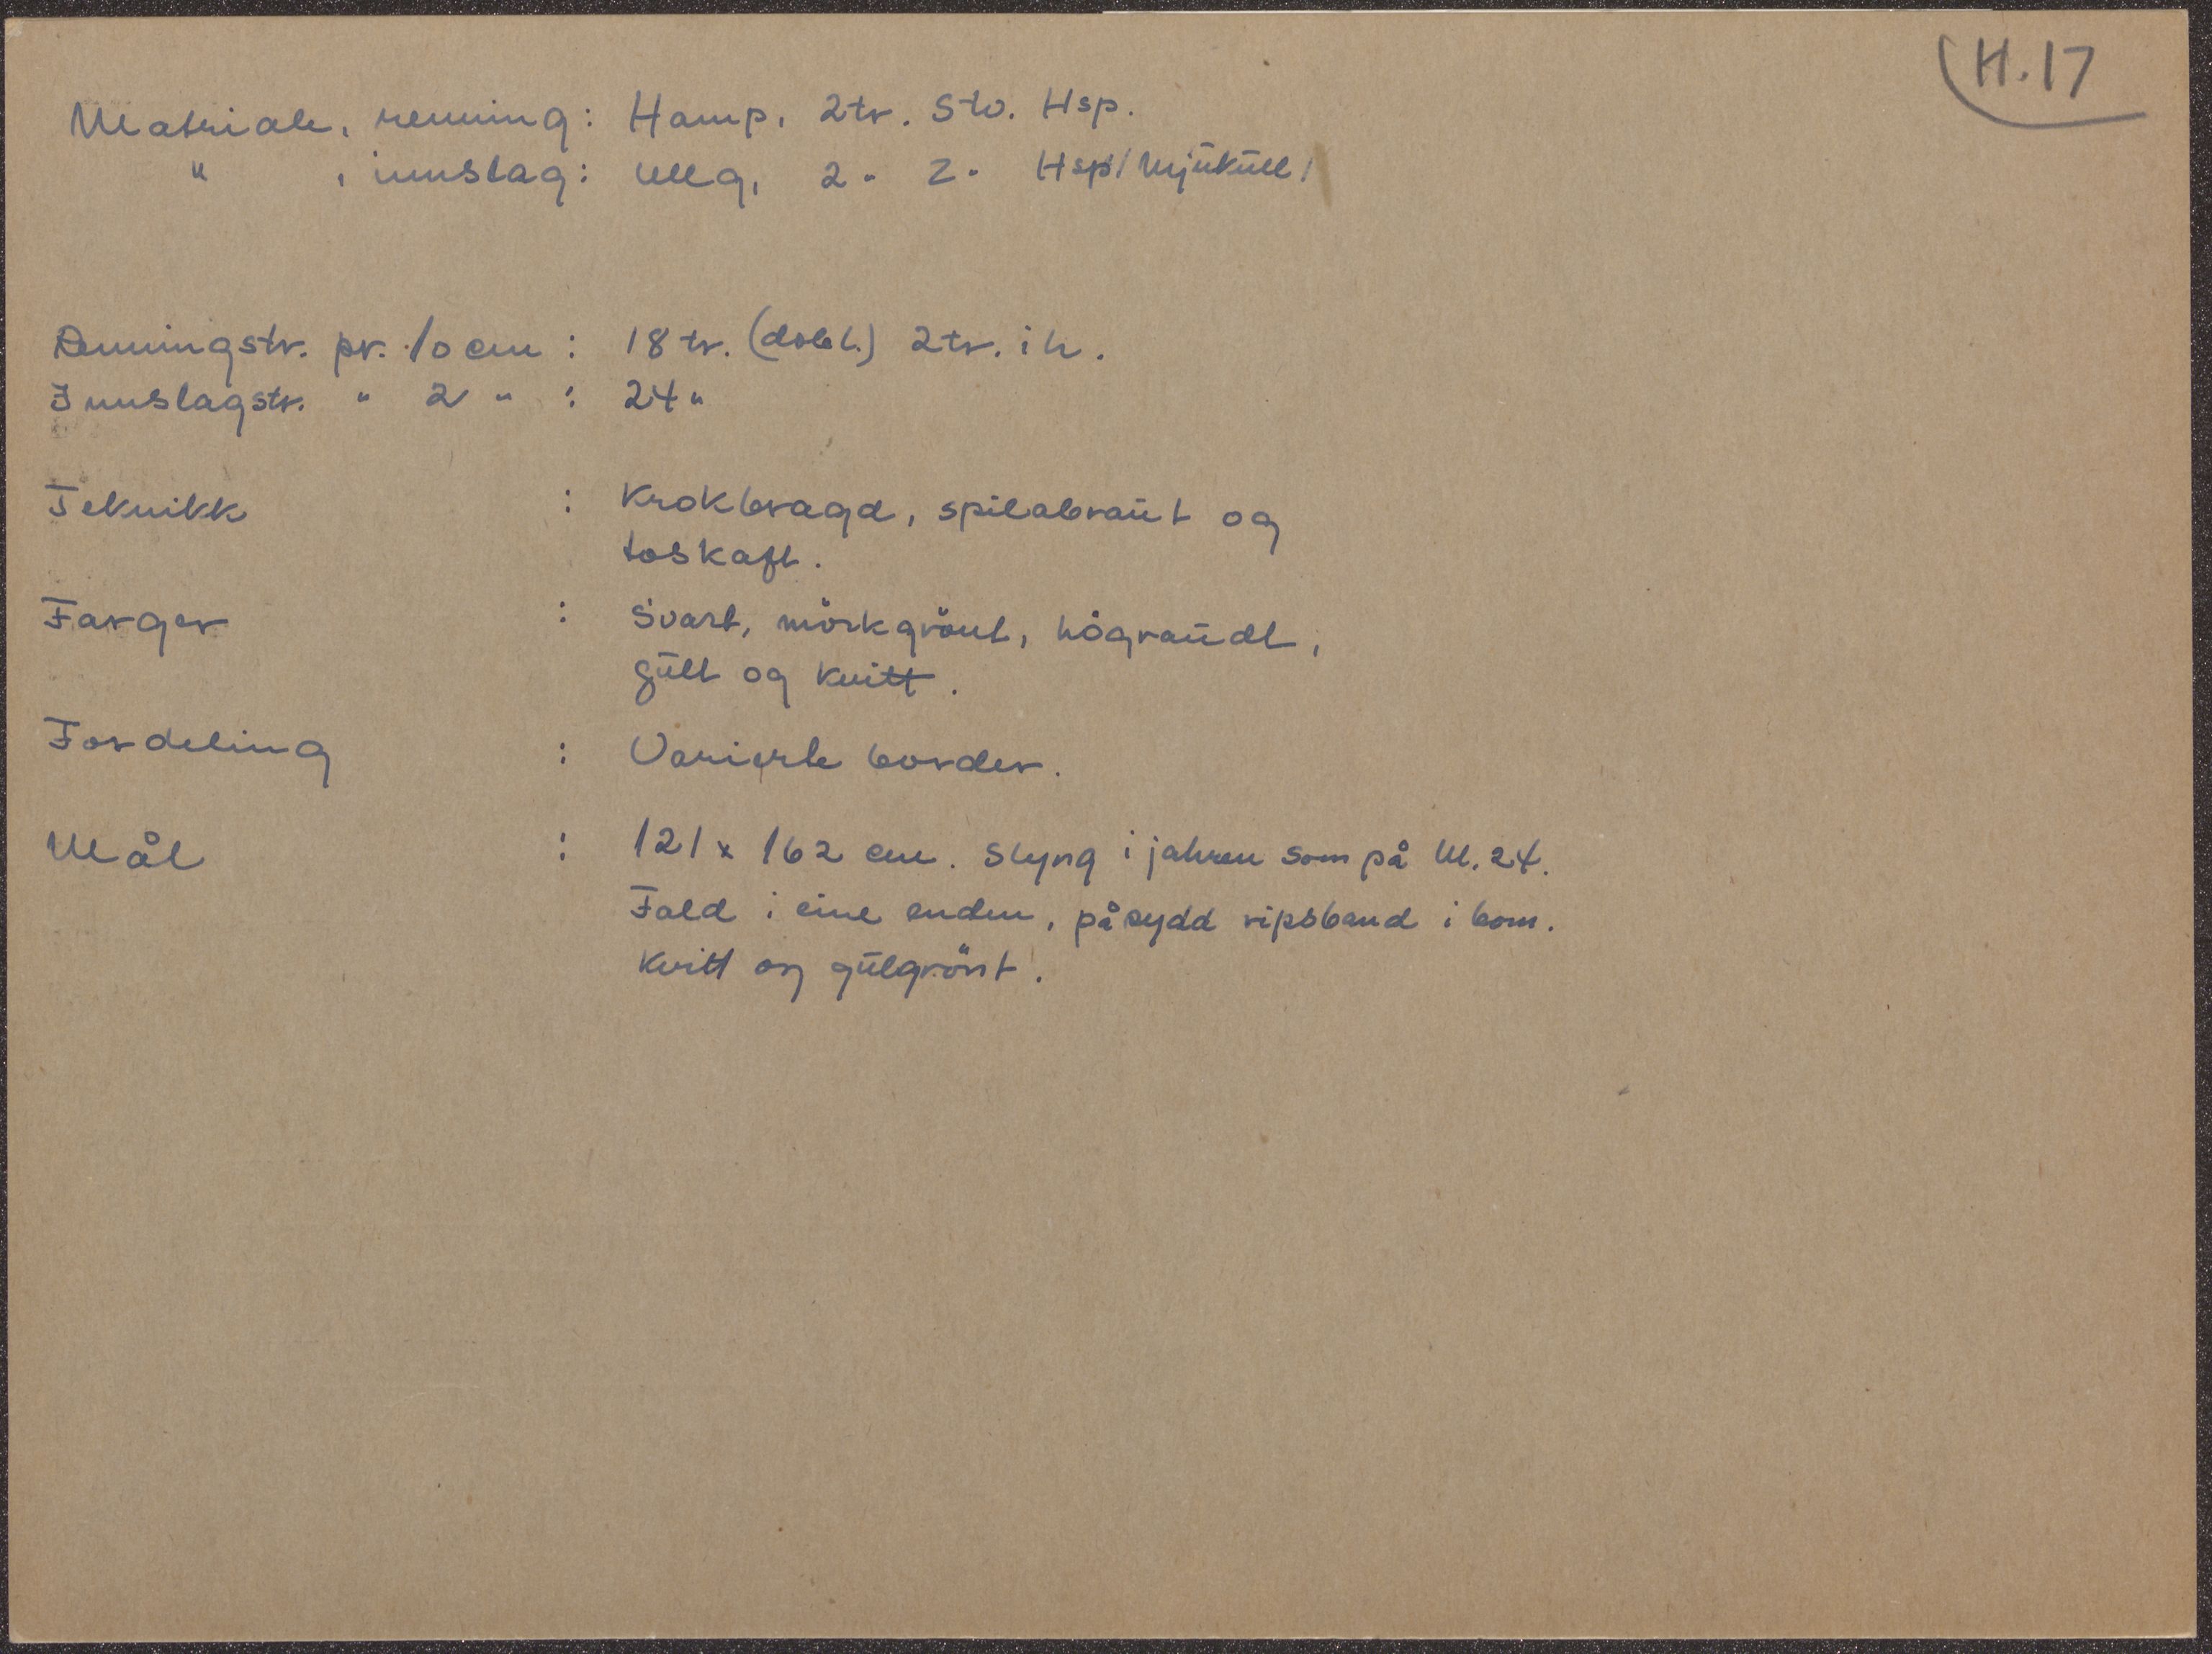 H.17
Matriale, renning: Hamp, 2tr. Stv. Hsp.
" , innslag: Ullg, 2 " Z " Hsp/Mjukull/
Renningstr. pr. 10 cm : 18 tr. (dobl.) 2tr. i h.
Innslagstr. " 2 " : 24 "
Teknikk : Krokbragd, spilabraut og
toskaft.
Farger : Svart, mörkgrönt, högraudt,
gult og kvitt.
Fordeling : Varierte border.
Mål : 121 x 162 cm. Slyng i jahren som på M. 24.
Fald i eine enden, påsydd ripsband i bom.
Kvitt og gulgrönt.